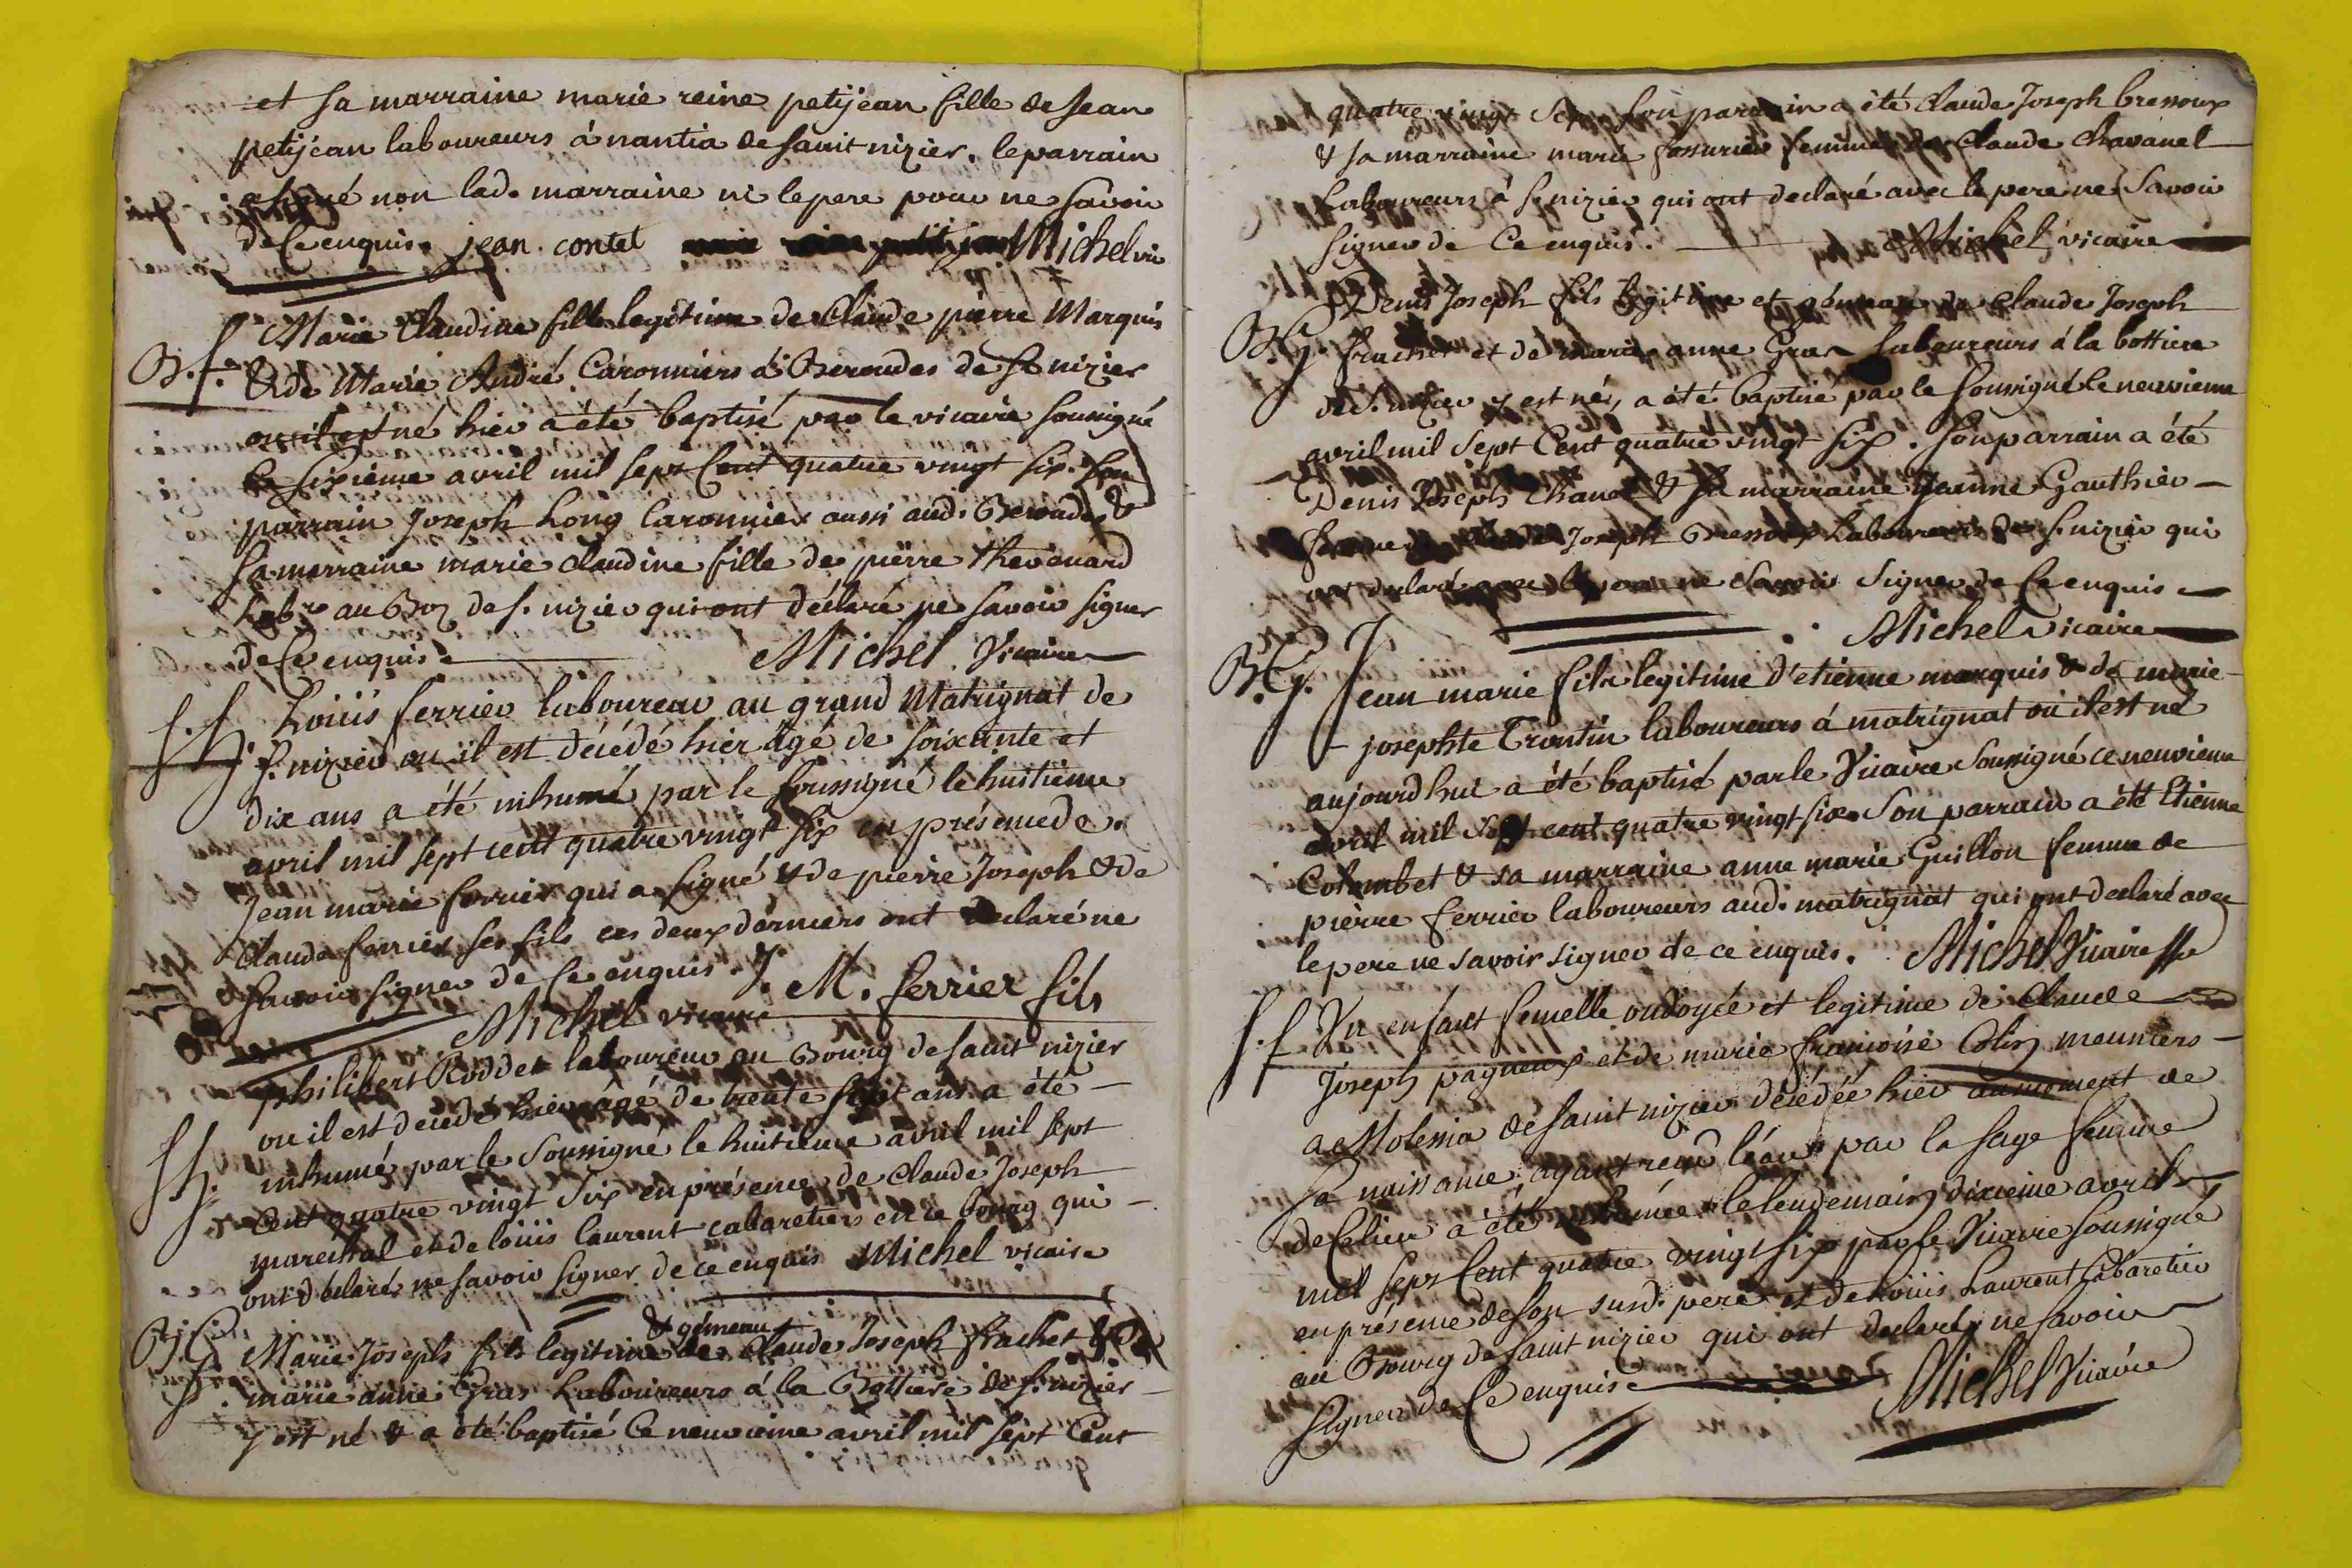 et sa marraine marie reine petijean fille de Jean
petijean laboureurs á nantia de saint nizier. le parrain
a signé non lad. marraine ni le pere pour ne savoir
de ce enquis. jean. contet Michel vic
B. f. Marie Claudine fille legitime de Claude pierre Marquis
& de Marie André Caronniers á Beroudes de St nizier
ou il est né hier a été baptisé par le vicaire soussigné
le sixième avril mil sept Cent quatre vingt six. Son
parrain Joseph Long Caronnier aussi aud. Beroudes &
sa marraine marie Claudine fille de pierre thevenard
Labrs au Bog de s. nizier qui ont déclaré ne savoir signer
de Ce enquis. Michel. Vicaire
s. h. Louis ferrier laboureur au grand Matrignat de
s. nizier ou il est décédé hier âgé de soixante et
dix ans a été inhumé par le soussigné le huitieme
avril mil sept cent quatre vingt six en présence de
Jean marie ferrier qui a signé & de pierre Joseph & de
Claude ferrier ses fils ces deux derniers ont déclaré ne
savoir signer de Ce enquis. J. M. ferrier fils
Michel vicaire
philibert Roddet laboureur au Bourg de saint nizier
ou il est décédé hier âgé de trente sept ans a été
s. h. inhumé par le soussigné le huitieme avril mil sept
Cent quatre vingt six en présence de Claude Joseph
marechal et de louis laurent cabaretiers en ce bourg qui
ont déclaré ne savoir signer de ce enquis Michel vicaire
& gémeau
B. G. Marie Joseph fils legitime de Claude Joseph frachet & de
marie anne Gras Laboureurs á la Bottiere de s. nizier
y est né & a été baptisé Ce neuvieme avril mil sept Cent
quatre vingt six son parrain a été Claude Joseph bressoux
& sa marraine marie femme de Claude Chavanel
Laboureurs á s. nizier qui ont declaré avec le pere ne Savoir
signer de Ce enquis. Michel vicaire
Denis Joseph fils legitime et gémeau de Claude Joseph
B. G. frachet et de marie anne Gras laboureurs á la bottiere
de s. nizier y est né, a été baptisé par le soussigné le neuvieme
avril mil sept Cent quatre vingt six. Son parrain a été
Denis Joseph Chanel & sa marraine Jeanne Gauthier
femme de Claude Joseph Bressoux Laboureurs de s. nizier qui
ont declaré avec le pere ne Savoir Signer de Ce enquis
Michel vicaire
B. G. Jean marie fils legitime d'etienne marquis & de marie
josephte Trontin laboureurs á matrignat où il est né
aujourdhui a été baptisé par le Vicaire Soussigné ce neuvieme
avril mil Sept cent quatre vingt six. Son parrain a été Etienne
Colombet & sa marraine anne marie Guillon femme de
pierre ferrier laboureurs aud. matrignat qui ont declaré avec
le pere ne savoir signer de ce enquis. Michel Vicaire
s. f. Un enfant femelle ondoyée et legitime de Claude
Joseph pagneux et de marie françoise Colin meuniers
a Molessia de saint nizier décédée hier au moment de
sa naissance, ayant reçu l'eau par la sage femme
de Ce lieu a été inhumée le lendemain dixieme avril
mil sept Cent quatre vingt six par le Vicaire soussigné
en présence de son susd. pere et de Louis Laurent Cabaretier
au Bourg de saint nizier qui ont declaré ne savoir
signer de Ce enquis Michel Vicaire